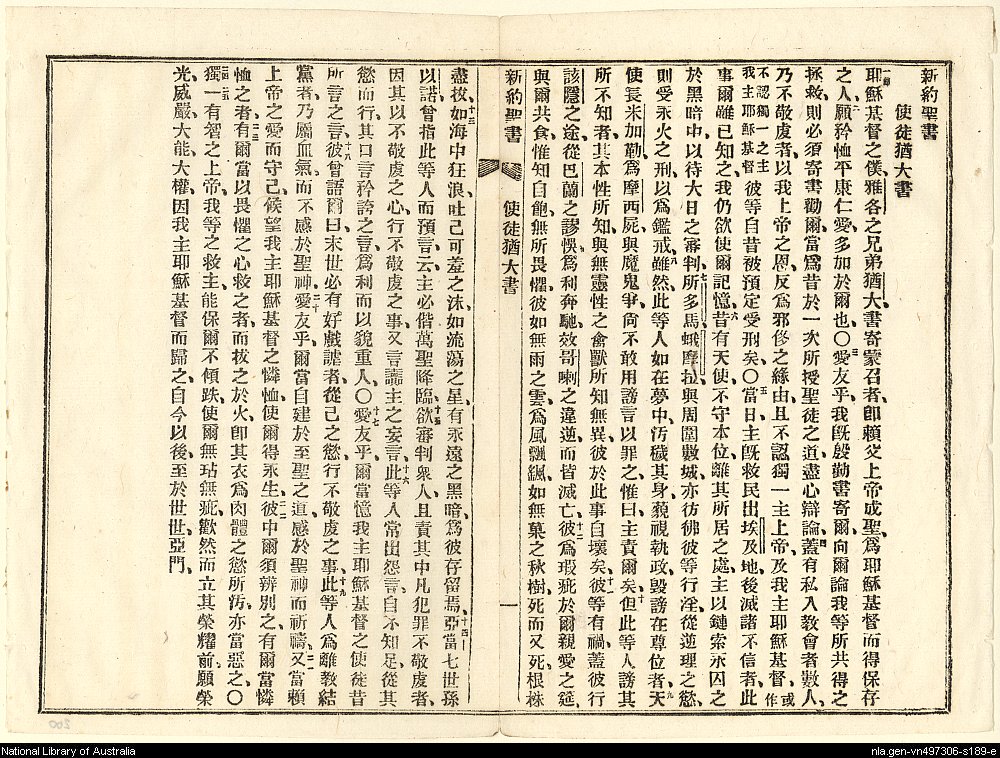 新約聖書
使徒猶大書
一節耶穌基督之僕、雅各之兄弟猶大、書寄蒙召者、卽賴父上帝成聖、爲耶穌基督而得保存
之人、二願矜恤平康仁愛、多加於爾也、〇三愛友乎、我旣殷勤書寄爾、向爾論我等所共得之
拯救、則必須寄書勸爾、當爲昔於一次所授聖徒之道、盡心辯論、四蓋有私入教會者數人、
乃不敬虔者、以我上帝之恩、反爲邪侈之緣由、且不認獨一主上帝、及我主耶穌基督、或作
不認獨一之主我主耶穌基督彼等自昔被預定受刑矣、〇五當日、主旣救民出埃及地、後滅諸不信者、此
事爾雖已知之、我仍欲使爾記憶、六昔有天使、不守本位、離其所居之處、主以鏈索永囚之
於黑暗中、以待大日之審判、七所多馬蛾摩拉、與周圍數城、亦彷彿彼等行淫、從逆理之慾、
則受永火之刑、以爲鑑戒、八雖然此等人如在夢中、汚穢其身、藐視執政、毀謗在尊位者、九天
使長米加勒、爲摩西屍與魔鬼爭、尙不敢用謗言以罪之、惟曰、主責爾矣、十但此等人謗其
所不知者、其本性所知、與無靈性之禽獸所知無異、彼於此事自壞矣、十一彼等有禍、蓋彼行
該隱之途、從巴蘭之謬悞、爲利奔馳、效哥喇之違逆、而皆滅亡、十二彼爲瑕疵於爾親愛之筵、
與爾共食、惟知自飽、無所畏懼、彼如無雨之雲、爲風飄颻、如無菓之秋樹、死而又死、根株
新約聖書
使徒猶大書
一
盡拔、十三如海中狂浪、吐己可羞之沫、如流蕩之星、有永遠之黑暗、爲彼存留焉、十四亞當七世孫
以諾、曾指此等人而預言、云、主必偕萬聖降臨、十五欲審判衆人、且責其中凡犯罪不敬虔者、
因其以不敬虔之心、行不敬虔之事、又言讟主之妄言、十六此等人常出怨言、自不知足、從其
慾而行、其口言矜誇之言、爲利而以貌重人、〇十七愛友乎、爾當憶我主耶穌基督之使徒昔
所言之言、十八彼曾語爾曰、末世必有好戲謔者、從己之慾、行不敬虔之事、十九此等人爲離教結
黨者、乃屬血氣、而不感於聖神、二十愛友乎、爾當自建於至聖之道、感於聖神而祈禱、二一又當賴
上帝之愛而守己、候望我主耶穌基督之憐恤、使爾得永生、二二彼中爾須辨別之、有爾當憐
恤之者、二三有爾當以畏懼之心救之者、而拔之於火、卽其衣爲肉體之慾所汚、亦當惡之、〇
二四二五獨一有智之上帝、我等之救主、能保爾不傾跌、使爾無玷無疵、歡然而立其榮耀前、願榮
光、威嚴、大能、大權、因我主耶穌基督而歸之、自今以後、至於世世、亞門、
National Library of Australia
nla.gen-vn497306-s189-e